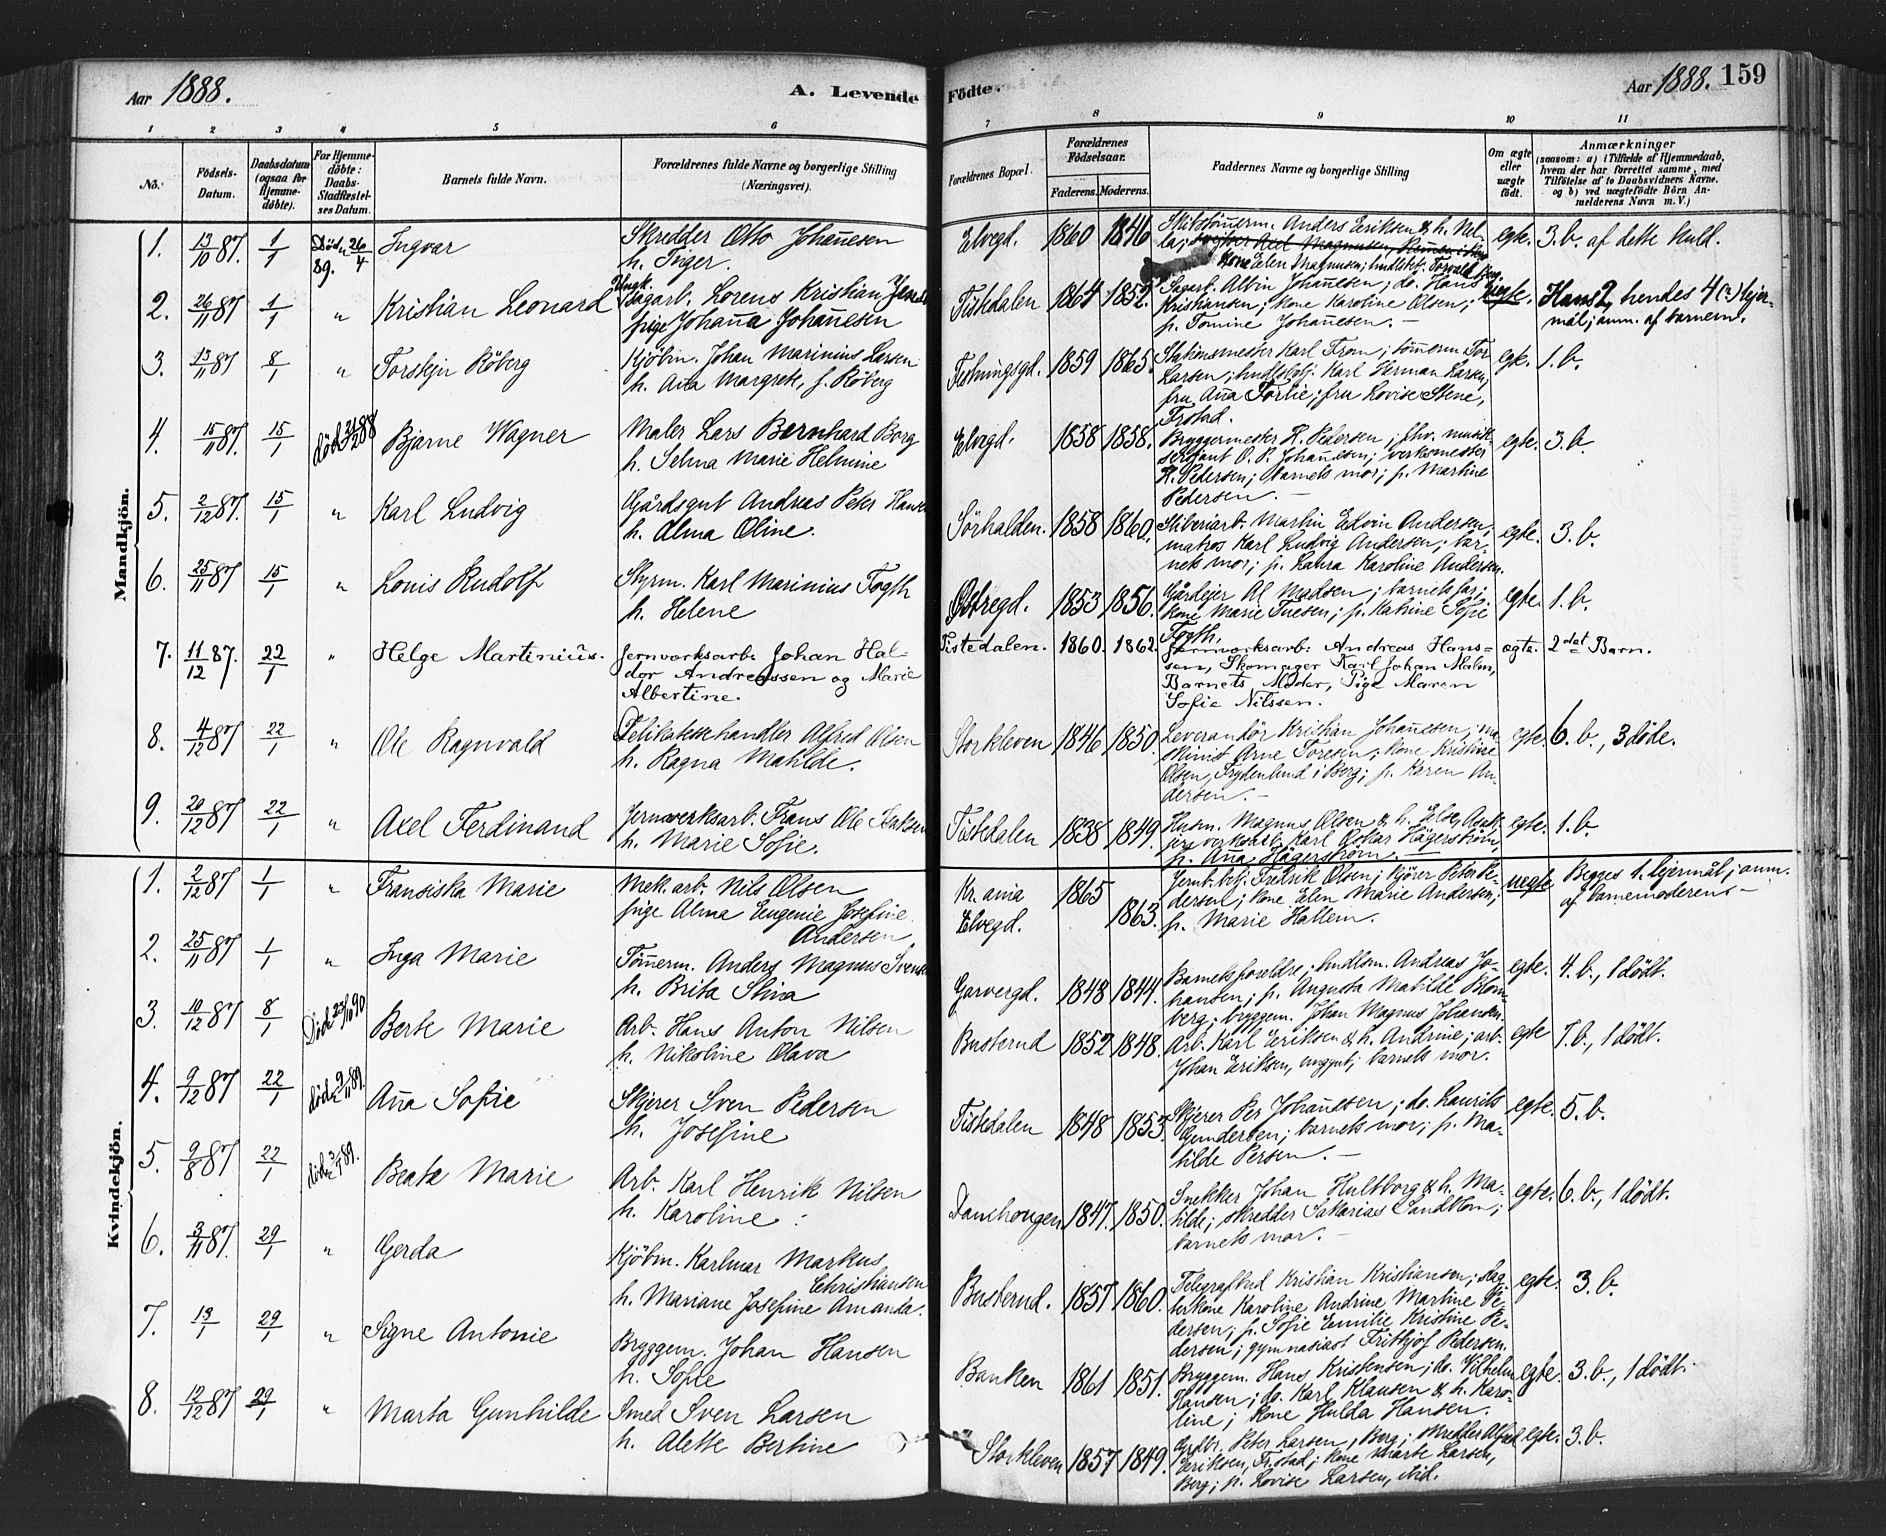 Aar 1888. A. Levende Fødte. Aar 1888. 159
1 2 3 4 5 6 7 8 9 10 11
No. Fødsels-Datum. Daabsdatum (ogsaa for Hjemme-døbte). For Hjemme-døbte: Daabs-Stadfæstel-ses Datum. Barnets fulde Navn. Forældrenes fulde Navne og borgerlige Stilling (Næringsvei). Forældrenes Bopæl. Forældrenes Fødselsaar. Faderens. Moderens. Faddernes Navne og borgerlige Stilling Om ægte eller uægte født. Anmærkninger (saasom: a) i Tilfælde af Hjemmedaab, hvem der har forrettet samme, med Tilføielse af to Daabsvidners Navne. og b) ved uægtefødte Børn An-melderens Navn m. V.)
Mandkjön.
1. 13/10 87. 1/1 Död 26/4 89. Ingvar
Skredder Otto Johan̄esen
h. Inger.
Elvegd. 1860 1846
Anders Eriksen & h.
kone Elen Magnusen;
egte. 3. b. af dette kuld.
2. 26/11 87 1/1 " Kristian Leonard
Ungk. Sagarb. Lorens Kristian Jensen
pige Johan̄a Johan̄esen
Tistedalen 1864 1852.
Sagarb. Albin Johan̄esen; do. Hans
Kristiansen; kone Karoline Olsen;
p. Tomine Johan̄esen. —
uegte. Hans 2, hendes 4 (?) leier-
mål; anm. af barnem.
3. 13/11 87 8/1 " Torstejn Röberg
Kjöbm. Johan Marinius Larsen
h. An̄a Margrete, f. Röberg
Festningsgd. 1859 1865.
Stationsmester Karl From; töm̄erm. Tor
Larsen; hndlsbtj. Karl Herman Larsen,
fru An̄a Förlie; fru Lovise Stene,
Frstad.
egte. 1. b.
4. 15/11 87. 15/1 död 21/2 88 Bjarne Wagner
Maler Lars Bernhard Borg
h. Selma Marie Helmine
Elvegd. 1858 1858.
Bryggermester H. Pedersen; fhv. musik-
sersjant O. P. Johan̄esen; verksmester
H. Pedersen; barnets mor; p. Martine
Pedersen. —
egte. 3. b.
5. 2/12 87. 15/1 " Karl Ludvig
Gårdsgut Andreas Peter Hansen
h. Alma Oline.
Sörhalden. 1858 1860.
Stiberiarb. Martin Edvin Andersen,
matros Karl Ludvig Andersen; bar-
nets mor; p. Laura Karoline Andersen.
egte. 3. b.
6. 25/11 87 15/1 " Louis Rudolf
Styrm. Karl Marinius Fogth
h. Helene
Østregd. 1853 1856.
Gårdejer Al Madsen; barnets far;
kone Marie Tuesen; p. Katrine Sofie
Fogth.
egte. 1. b.
7. 11/12 87. 22/1 " Helge Martinius.
Jernværksarb. Johan Hal-
dor Andreassen og Marie
Albertine.
Tistedalen. 1860. 1862.
Jernværksarb. Andreas Hans-
sen, Skomager Karl Johan Malm,
Barnets Moder, Pige Maren
Sofie Nilssen.
ægte. 2det Barn.
8. 4/12 87 22/1 " Ole Ragnvald
Delikatessehandler Alfred Olsen
h. Ragna Matilde.
Storkleven 1846 1850.
Leverandör Kristian Johan̄esen; ma-
skinist Arne Toresen; kone Kristine
Olsen, Frydenlund i Berg; p. Karen An-
dersen. —
egte. 6. b., 3 döde.
9. 20/12 87 22/1 " Axel Ferdinand
Jernverksarb. Frans Ole Isaksen
h. Marie Sofie.
Tistedalen 1838 1849.
Husm. Magnus Olsen & h. Else,
jernverksarb. Karl Oskar Hägerström,
p. An̄a Hägerström. —
egte. 1. b.
Kvindekjön.
1. 2/12 87 1/1 " Fransiska Marie
Mek. arb. Nils Olsen
pige Alma Eugenie Josefine
Andersen
Kr.ania 1865
Elvegd. 1863.
Jernb. btj. Fredrik Olsen; kjörer Peter Pe-
dersen; kone Elen Marie Andersen;
p. Marie Hallem.
uegte Begges 1. lejermål; anm.
af barnemoderens —
2. 25/11 87 1/1 " Inga Marie
Töm̄erm. Anders Magnus Svensen
h. Brita Stina
Garvergd. 1848 1844.
Barnets foreldre; hndlsm. Andreas Jo-
hansen; p. Augusta Matilde Blom-
berg; bryggem. Johan Magnus Johansen.
egte. 4. b., 1 dödt.
3. 10/12 87 8/1 Död 23/10 90 Berte Marie
Arb. Hans Anton Nilsen
h. Nikoline Olava
Busterud 1852 1848.
Arb. Karl Eriksen & h. Andrine; arb.
Johan Eriksen, unggut; barnets mor.
egte 7. b., 1 dödt.
4. 9/12 87 22/1 död 9/11 89. An̄a Sofie
Skjerer Sven Pedersen
h. Josefine
Tistedalen 1848 1853.
Skjerer Per Johan̄esen; do. Laurits
Gundersen; barnets mor; p. Ma-
tilde Persen. —
egte. 5. b.
5. 9/8 87 22/1 död 3/1 89. Beate Marie
Arb. Karl Henrik Nilsen
h. Karoline
Damhougen 1847. 1850.
Snekker Johan Hultborg & h. Ma-
tilde; skredder Sakarias Sandblom;
barnets mor. —
egte. 6. b., 1 dödt.
6. 3/11 87. 29/1 " Gerda
Kjöbm. Karlmar Markus
Christiansen
h. Mariane Josefine Amanda.
Busterud. 1857 1860.
Telegrafbud Kristian Kristiansen; slag-
terkone Karoline Andrine Martine Pe-
dersen; p. Sofie Emilie Kristine Pe-
dersen; gymnasiast Frithjof Pedersen.
egte. 3. b.
7. 13/1 29/1 " Signe Antonie
Bryggem. Johan Hansen
h. Sofie
Banken 1861 1851.
Bryggem. Hans Kristensen; do. Vilhelm
Hansen; do. Karl Klausen & h. Karo-
line; kone Hulda Hansen.
egte. 3. b., 1 dödt.
8. 12/12 87 29/1 " Marta Gunhilde
Smed Sven Larsen
h. Alette Bertine
Storkleven 1857 1849.
Peter Larsen, Berg; skredder Alfred
Eriksen, Frstad; kone Marte Larsen,
Berg; p. Lovise Larsen, ibid.
egte. 3. b.